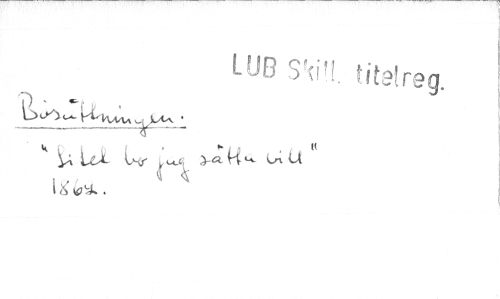 LUB Skill. titelreg.
Bosättningen.
"Litet bo jag sätta vill"
1864.